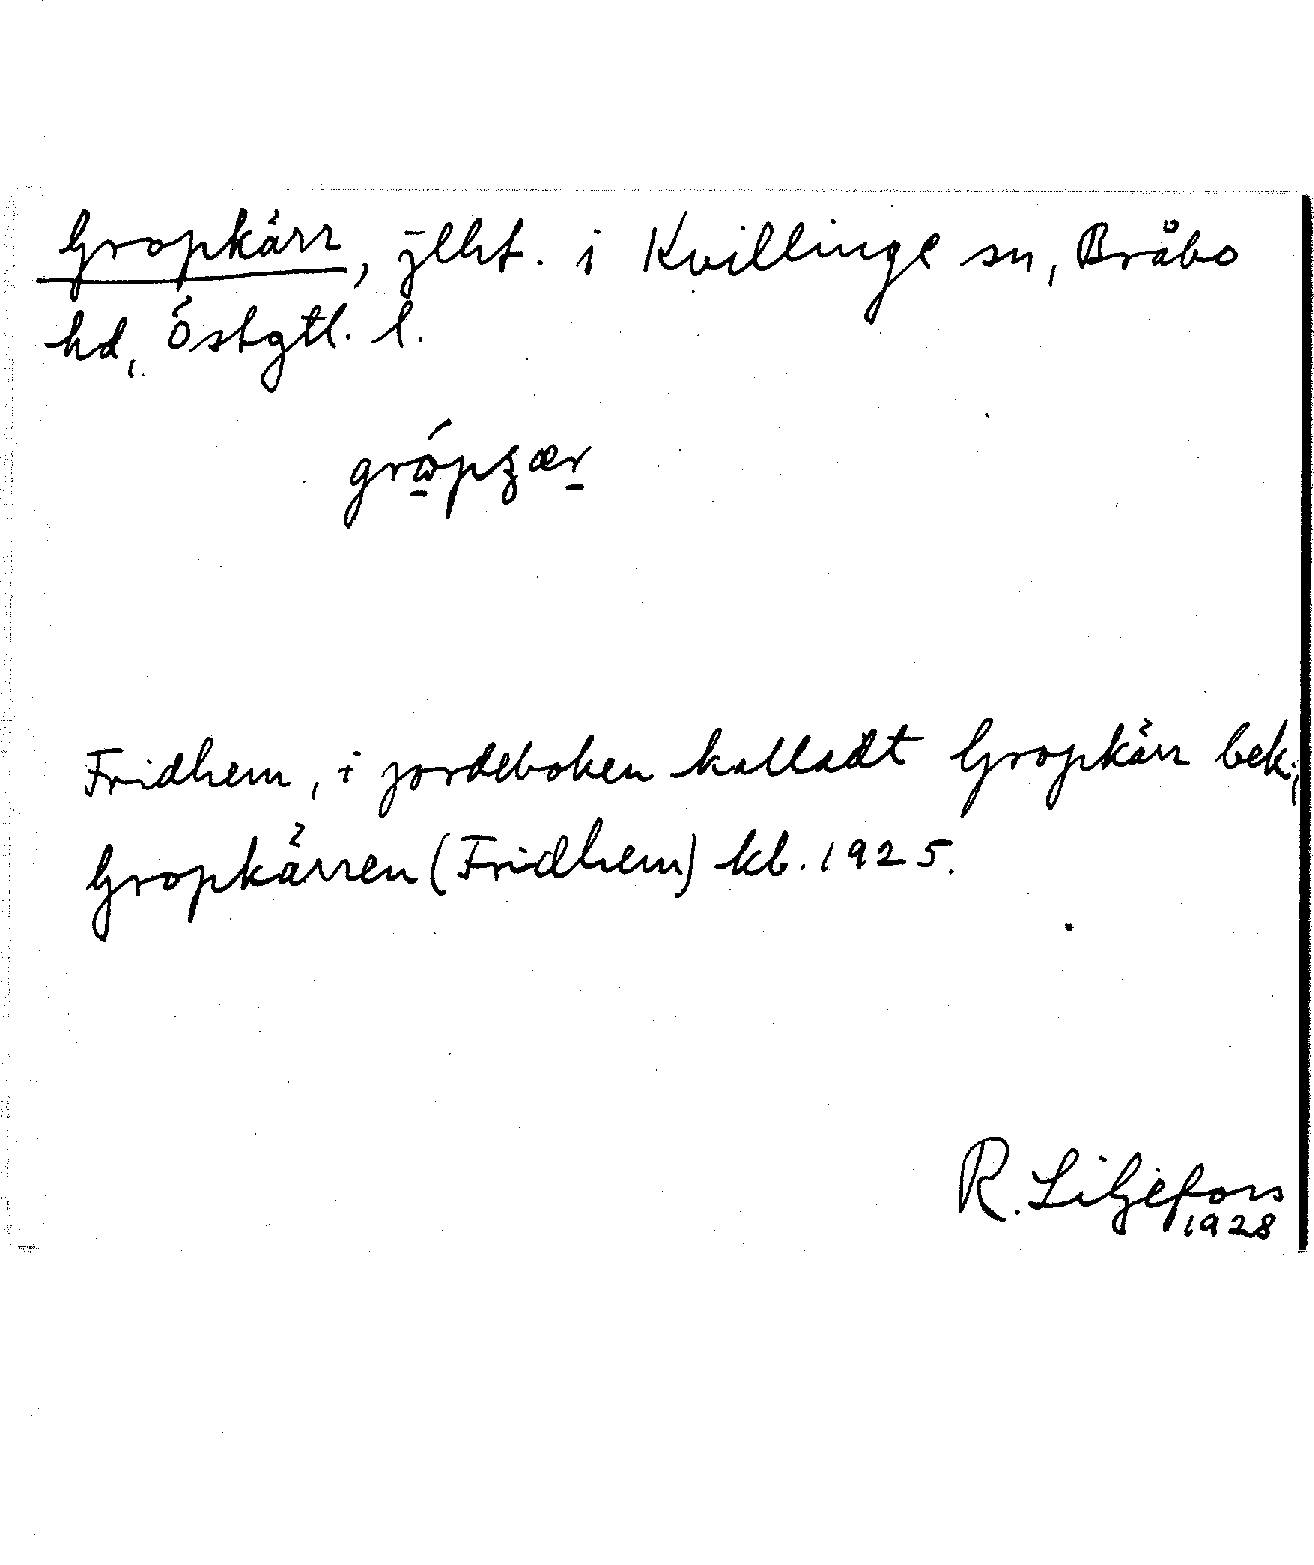 Gropkärr, jlht. i Kvillinge sn, Bråbo
hd, Östgtl. l.
Fridhem, i jordeboken kalladt Gropkärr bek;
Gropkärren (Fridhem) kb. 1925.
R. Liljefors
1928